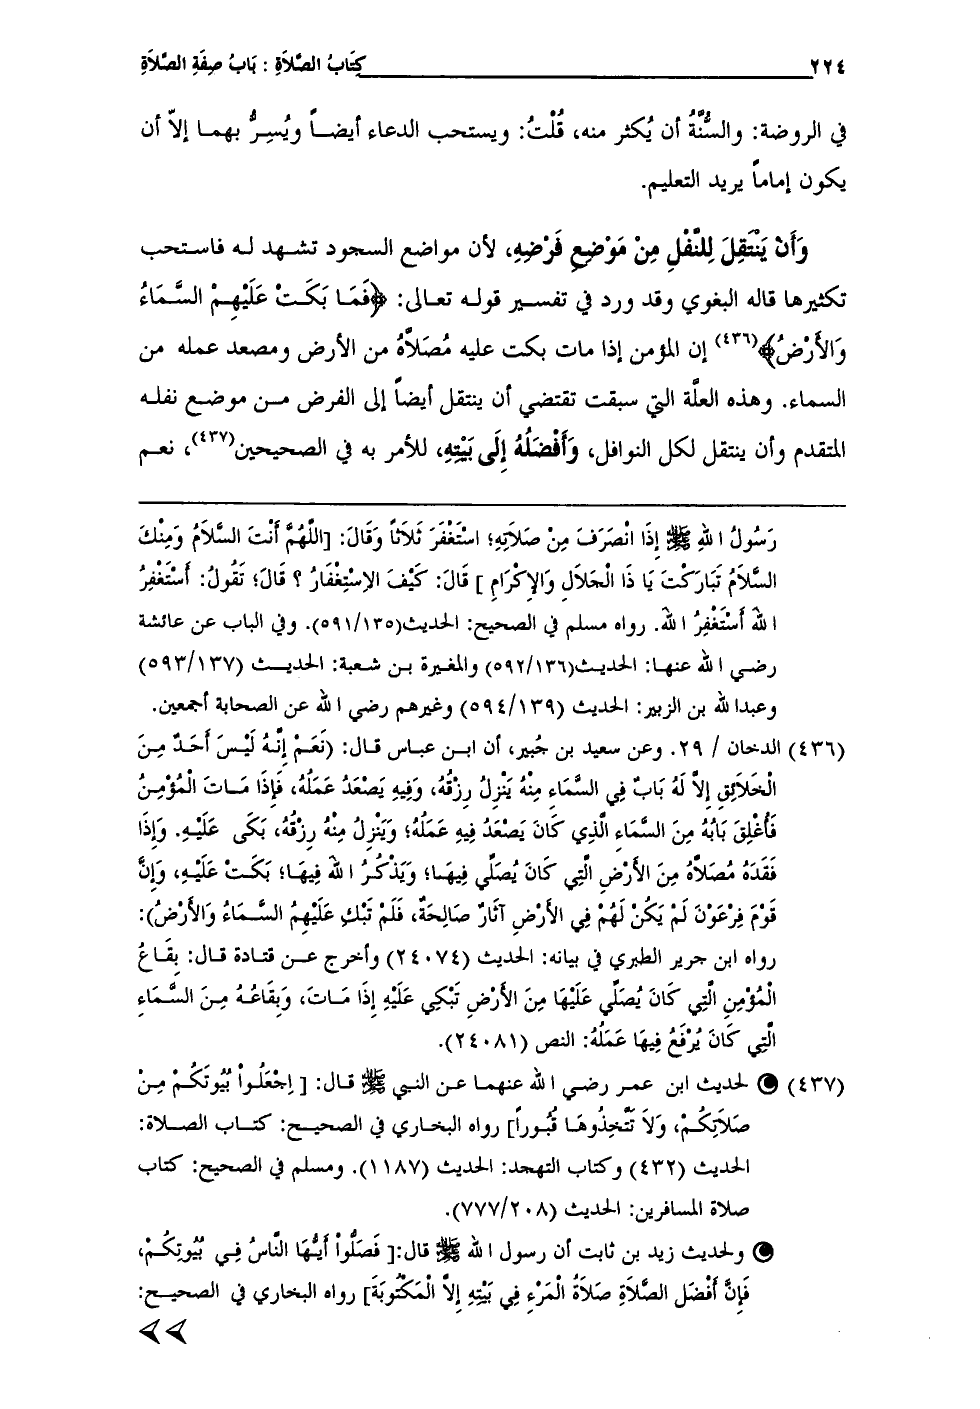 ٢٢٤ كِتَابُ الصَّلَاةِ : بَابُ صِفَةِ الصَّلَاةِ
في الروضة: والسُّنَّةُ أن يُكثر منه، قُلْتُ: ويستحب الدعاء أيضاً ويُسِرُّ بهما إلاّ أن
يكون إماماً يريد التعليم.
وَأَنْ يَنْتَقِلَ لِلنَّفْلِ مِنْ مَوْضِعِ فَرْضِهِ، لأن مواضع السجود تشهد له فاستحب
تكثيرها قاله البغوي وقد ورد في تفسير قوله تعالى: ﴿فَمَا بَكَتْ عَلَيْهِمْ السَّمَاءُ
وَالأَرْضُ﴾(٤٣٦) إن المؤمن إذا مات بكت عليه مُصَلاَّهُ من الأرض ومصعد عمله من
السماء. وهذه العلّة التي سبقت تقتضي أن ينتقل أيضاً إلى الفرض من موضع نفله
المتقدم وأن ينتقل لكل النوافل، وَأَفْضَلُهُ إِلَى بَيْتِهِ، للأمر به في الصحيحين(٤٣٧)، نعم
رَسُولُ اللهِ ﷺ إِذَا انْصَرَفَ مِنْ صَلاَتِهِ؛ اسْتَغْفَرَ ثَلاَثاً وَقَالَ: [اللَّهُمَّ أَنْتَ السَّلاَمُ وَمِنْكَ
السَّلاَمُ تَبَارَكْتَ يَا ذَا الْجَلاَلِ وَالإِكْرَامِ ] قَالَ: كَيْفَ الاِسْتِغْفَارُ ؟ قَالَ؛ تَقُولُ: أَسْتَغْفِرُ
اللهَ أَسْتَغْفِرُ اللهَ. رواه مسلم في الصحيح: الحديث(٥٩١/١٣٥). وفي الباب عن عائشة
رضي الله عنها: الحديث(٥٩٢/١٣٦) والمغيرة بن شعبة: الحديث (٥٩٣/١٣٧)
وعبدالله بن الزبير: الحديث (٥٩٤/١٣٩) وغيرهم رضي الله عن الصحابة أجمعين.
(٤٣٦) الدخان / ٢٩. وعن سعيد بن جُبير، أن ابن عباس قال: (نَعَمْ إِنَّهُ لَيْسَ أَحَدٌ مِنَ
الْخَلاَئِقِ إِلاَّ لَهُ بَابٌ فِي السَّمَاءِ مِنْهُ يَنْزِلُ رِزْقُهُ، وَفِيهِ يَصْعَدُ عَمَلُهُ، فَإِذَا مَاتَ الْمُؤْمِنُ
فَأُغْلِقَ بَابُهُ مِنَ السَّمَاءِ الَّذِي كَانَ يَصْعَدُ فِيهِ عَمَلُهُ؛ وَيَنْزِلُ مِنْهُ رِزْقُهُ، بَكَى عَلَيْهِ. وَإِذَا
فَقَدَهُ مُصَلاَّهُ مِنَ الأَرْضِ الَّتِي كَانَ يُصَلِّي فِيهَا؛ وَيَذْكُرُ اللهَ فِيهَا؛ بَكَتْ عَلَيْهِ، وَإِنَّ
قَوْمَ فِرْعَوْنَ لَمْ يَكُنْ لَهُمْ فِي الأَرْضِ آثَارٌ صَالِحَةٌ، فَلَمْ تَبْكِ عَلَيْهِمُ السَّمَاءُ وَالأَرْضُ):
رواه ابن جرير الطبري في بيانه: الحديث (٢٤٠٧٤) وأخرج عن قتادة قال: بِقَاعُ
الْمُؤْمِنِ الَّتِي كَانَ يُصَلِّي عَلَيْهَا مِنَ الأَرْضِ تَبْكِي عَلَيْهِ إِذَا مَاتَ، وَبِقَاعُهُ مِنَ السَّمَاءِ
الَّتِي كَانَ يُرْفَعُ فِيهَا عَمَلُهُ: النص (٢٤٠٨١).
(٤٣٧) لحديث ابن عمر رضي الله عنهما عن النبي ﷺ قال: [ اِجْعَلُواْ بُيُوتَكُمْ مِنْ
صَلاَتِكُمْ، وَلاَ تَتَّخِذُوهَا قُبُوراً] رواه البخاري في الصحيح: كتاب الصلاة:
الحديث (٤٣٢) وكتاب التهجد: الحديث (١١٨٧). ومسلم في الصحيح: كتاب
صلاة المسافرين: الحديث (٧٧٧/٢٠٨).
ولحديث زيد بن ثابت أن رسول الله ﷺ قال:[ فَصَلُّواْ أَيُّهَا النَّاسُ فِي بُيُوتِكُمْ،
فَإِنَّ أَفْضَلَ الصَّلاَةِ صَلاَةُ الْمَرْءِ فِي بَيْتِهِ إِلاَّ الْمَكْتُوبَةَ] رواه البخاري في الصحيح: